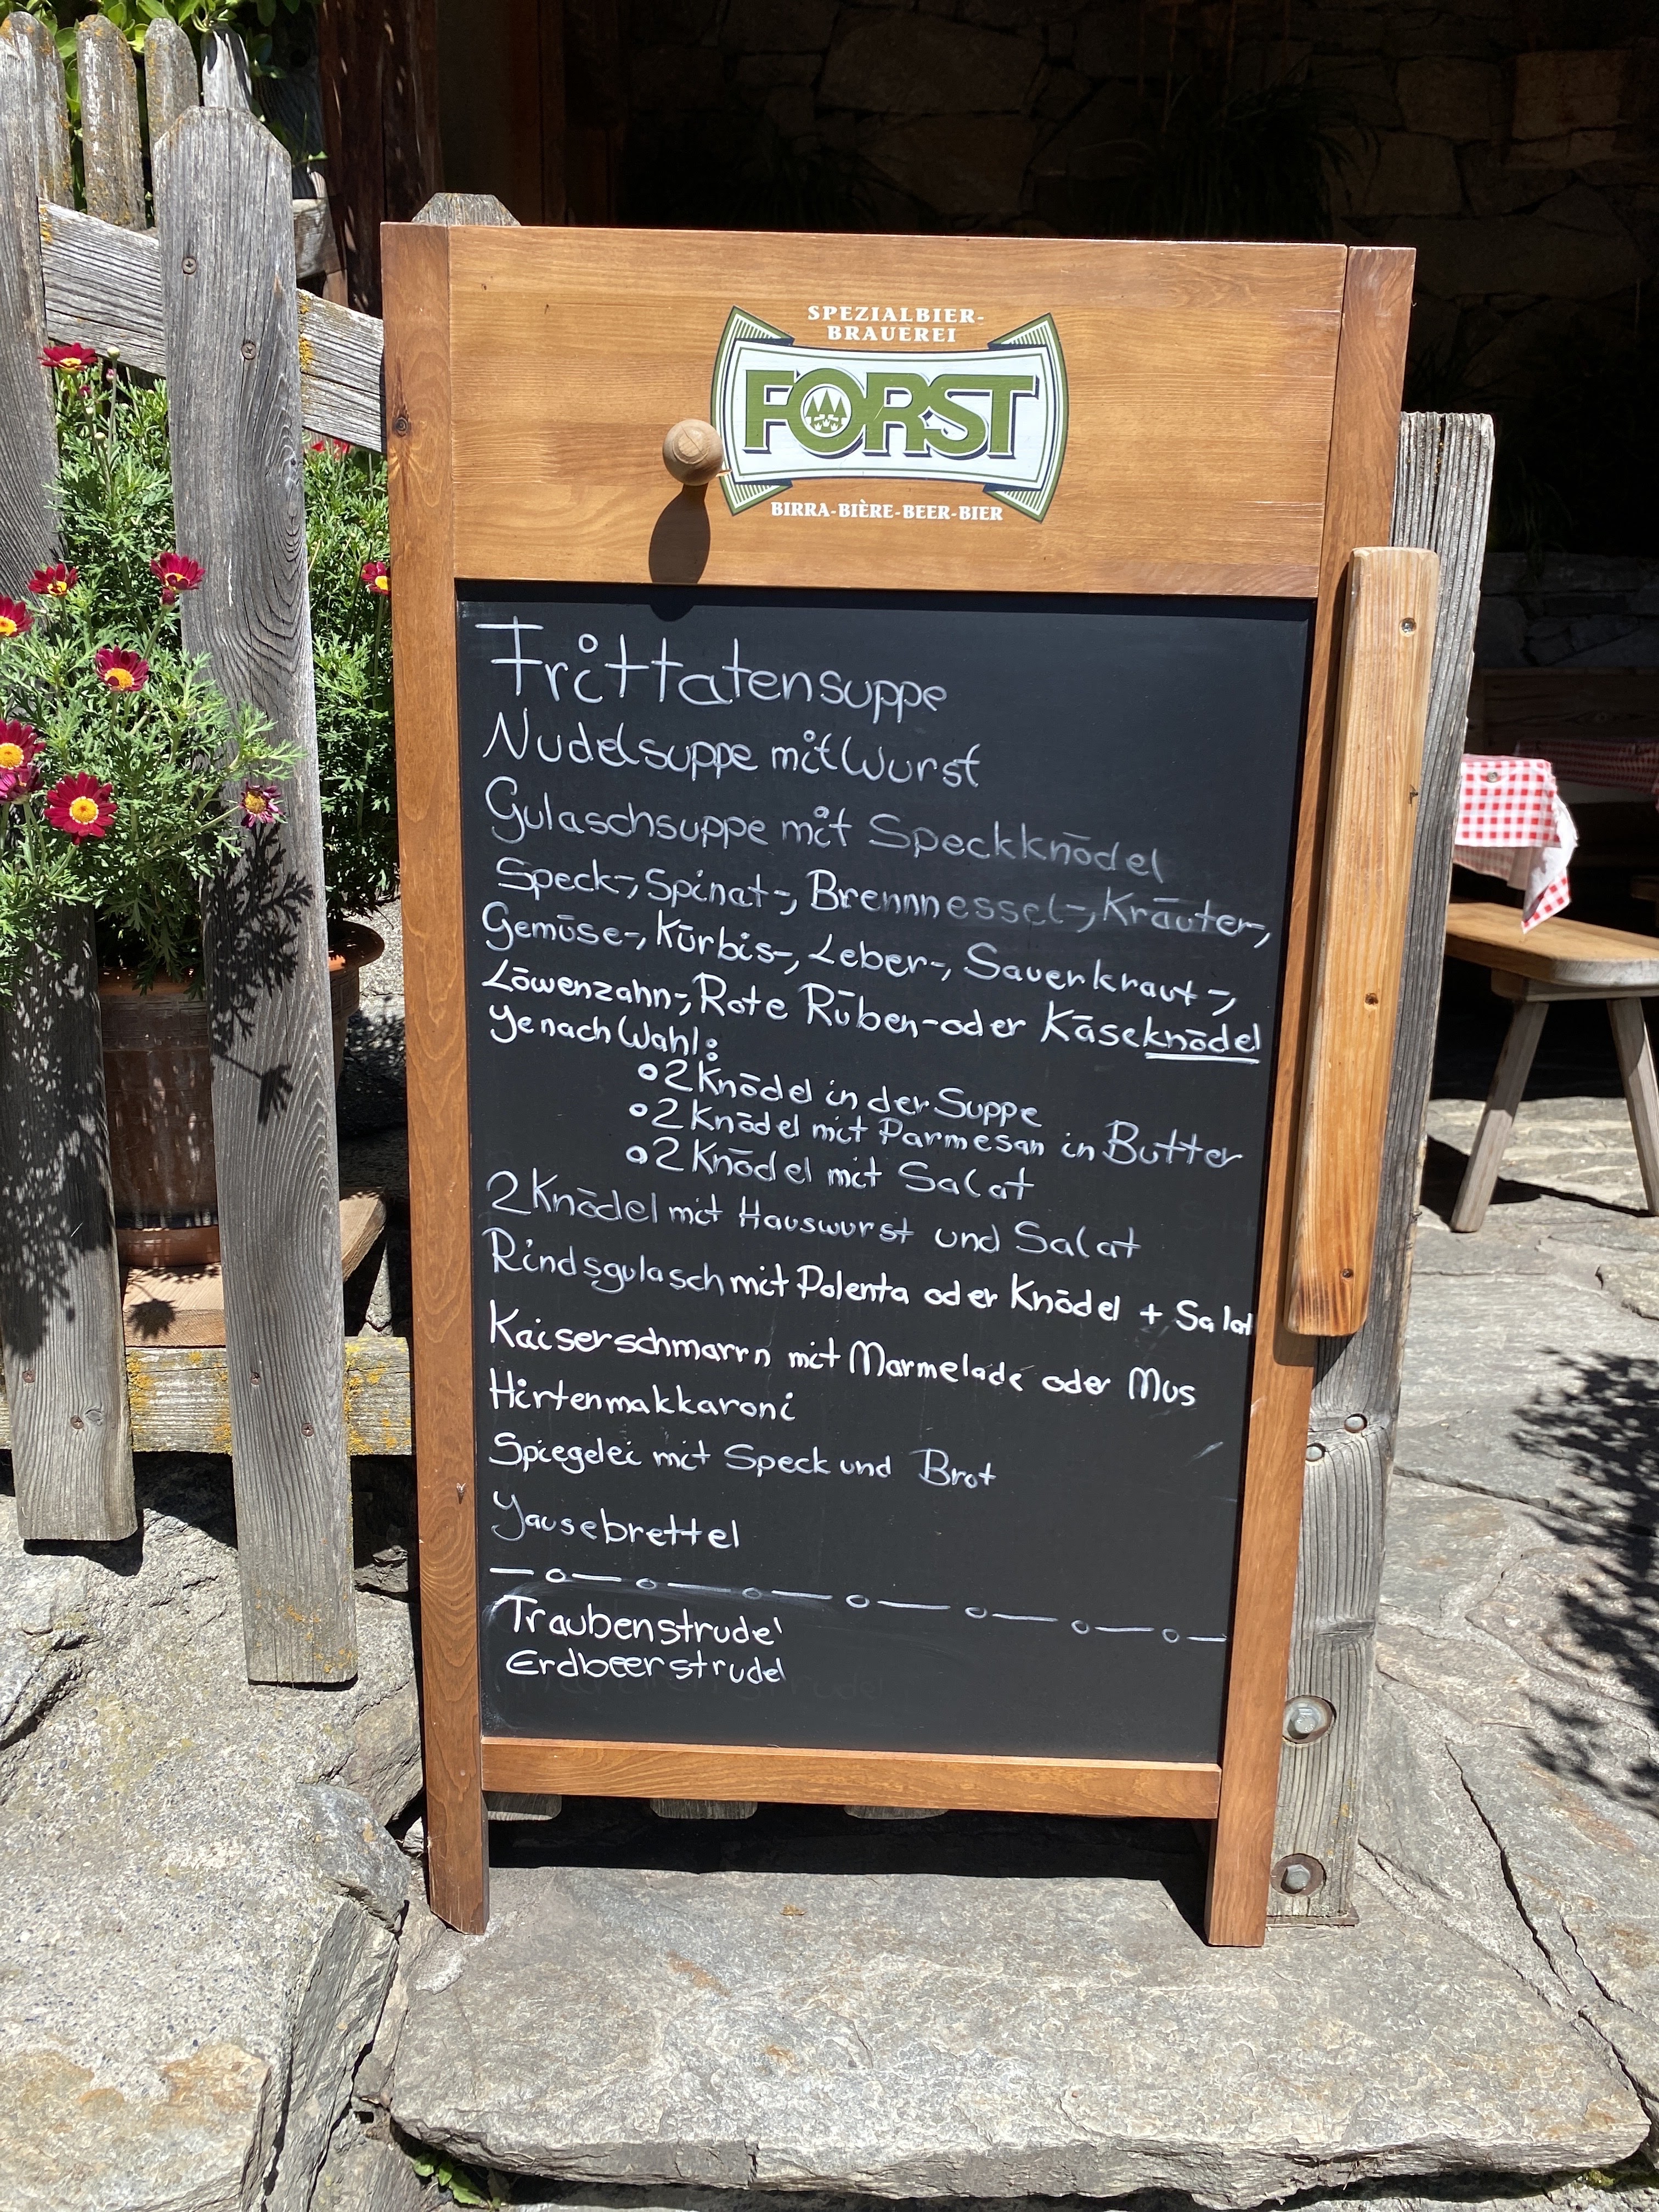 SPEZIALBIER-
BRAUEREI
FORST
BIRRA-BIÈRE-BEER-BIER
Frittatensuppe
Nudelsuppe mit Wurst
Gulaschsuppe mit Speckknödel
Speck-, Spinat-, Brennnessel-, Kräuter-,
Gemüse-, Kürbis-, Leber-, Sauerkraut-,
Löwenzahn-, Rote Rüben- oder Käseknödel
Je nach Wahl:
• 2 Knödel in der Suppe
• 2 Knödel mit Parmesan in Butter
• 2 Knödel mit Salat
2 Knödel mit Hauswurst und Salat
Rindsgulasch mit Polenta oder Knödel + Salat
Kaiserschmarrn mit Marmelade oder Mus
Hirtenmakkaroni
Spiegelei mit Speck und Brot
Jausebrettel
Traubenstrudel
Erdbeerstrudel